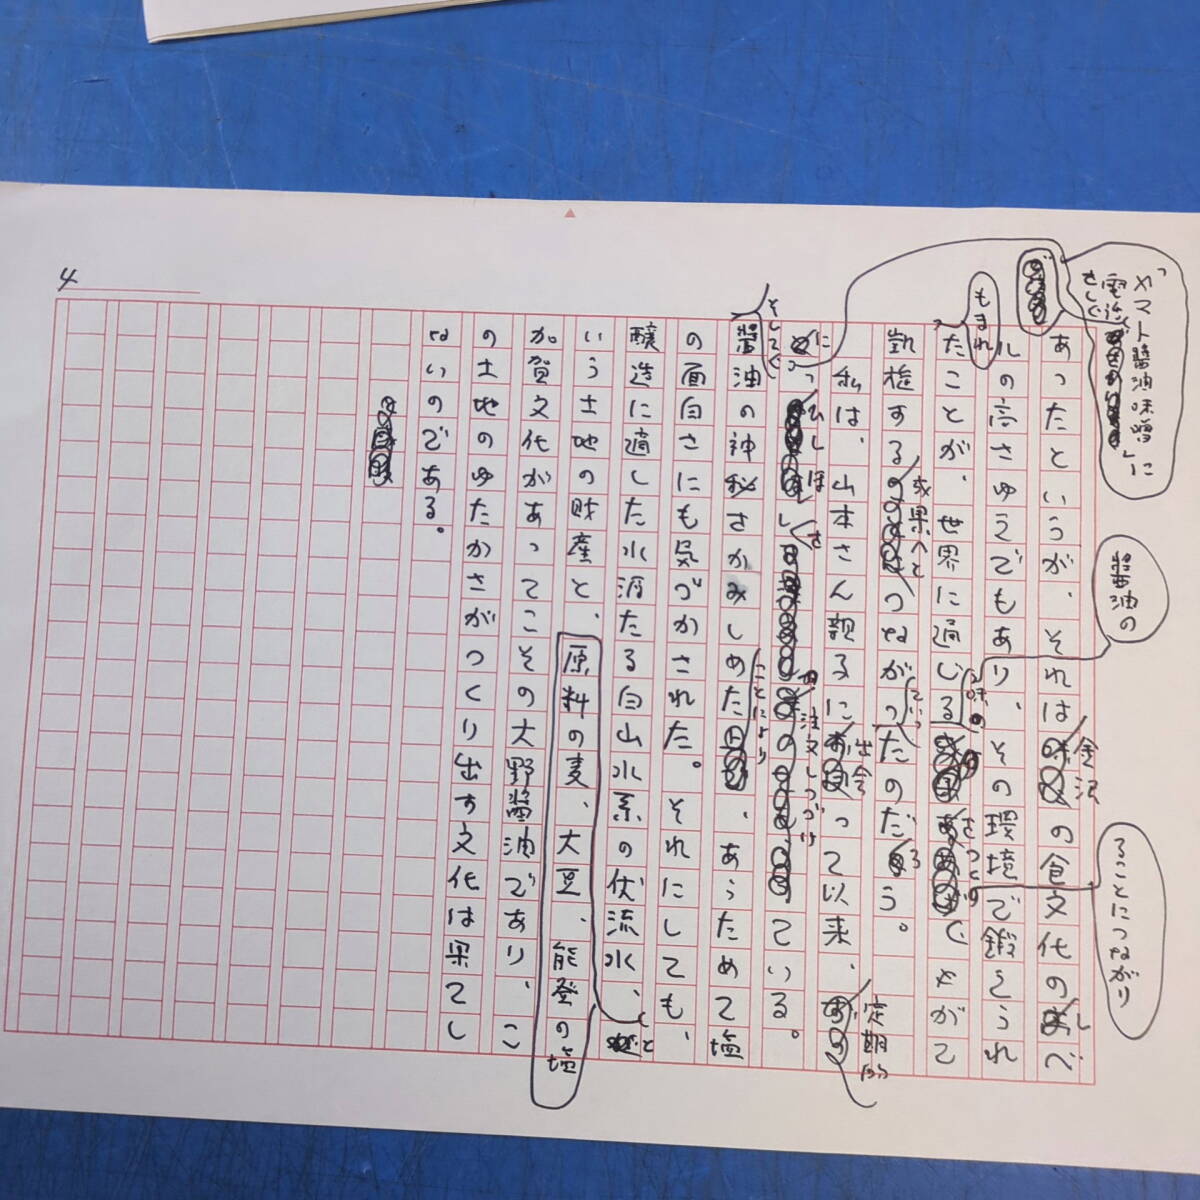 4
「ヤマト醤油味噌」に
電話
もまれ
醤油の
ることにつながり
あったというが、それは
金沢
の食文化の
レベ
ルの高さゆえでもあり、その環境で鍛えられ
たことが、世界に通じる
味の
やがて
凱旋する
成果へと
つながっ
ていっ
たのだろう。
私は、山本さん親子に
出会
って以来、
定期的
に
ひしほ
注文しつづけ
ている。
そして
醤油の神秘さかみしめた
ことにより
、あらためて塩
の面白さにも気づかされた。それにしても、
醸造に適した水源たる白山水系の伏流水、
と
いう土地の財産と、
原料の麦、大豆、能登の塩
加賀文化があってこその大野醤油であり、こ
の土地のゆたかさがつくり出す文化は果てし
ないのである。